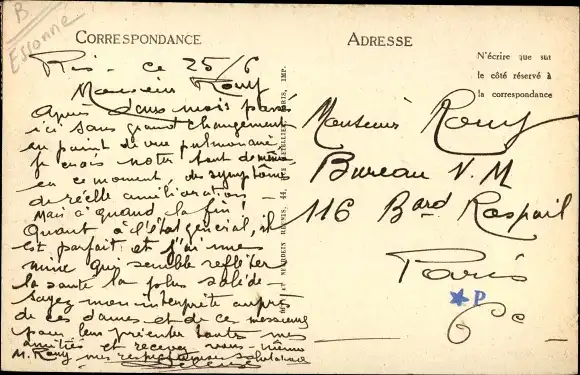 B
Essonne
CORRESPONDANCE
Ris - ce 25/6
Monsieur Rouy
Après deux mois passés
ici sans grand changement
au point de vue pulmonaire,
je crois noter tout de même
en ce moment, des symptômes
de réelle amélioration -
Mais à quand la fin !
Quant à l'état général, il
est parfait et j'ai une
mine qui semble refléter
la santé la plus solide -
Soyez mon interprète auprès
de ces dames et de ces messieurs
pour leur présenter toutes mes
amitiés et recevez vous-même
M. Rouy mes respectueuses salutations
ADRESSE
N'écrire que sur
le côté réservé à
la correspondance
Monsieur Rouy
Bureau V. M
116 Bard Raspail
Paris
P
6e